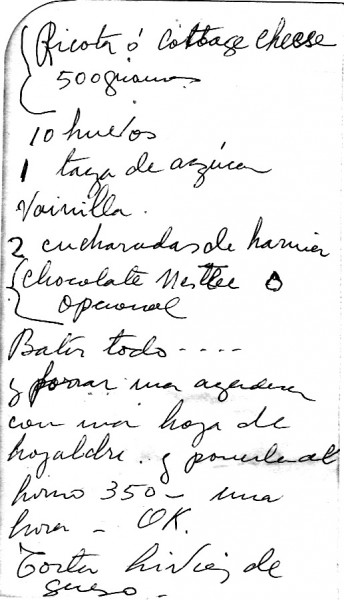 Ricota ó cottage cheese
500 gramos
10 huevos
1 taza de azúcar
Vainilla.
2 cucharadas de harina
Chocolate Nestlee O
opcional
Batir todo ----
y forrar una
con una hoja de
hojaldre. y ponerla al
horno 350 - una
hora - OK.
Torta de
queso.